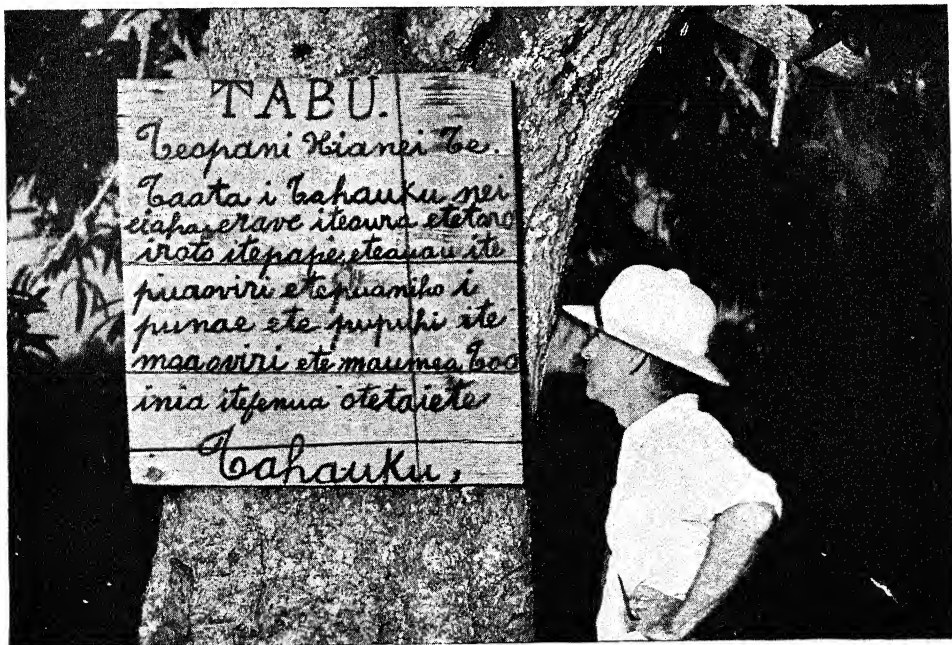 TABU.
Teopani Hianei Te.
Taata i Tahauku nei
eiaha erave iteoura etetaro
iroto itepape, eteauau ite
puaoviri etepuaniho i
punae ete pupuhi ite
moaoviri ete maumea Too
inia itefenua otetaiete
Tahauku,